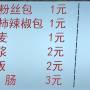 粉丝包 1元
柿辣椒包 1元
麦 1元
浆 2元
饭 2元
肠 3元